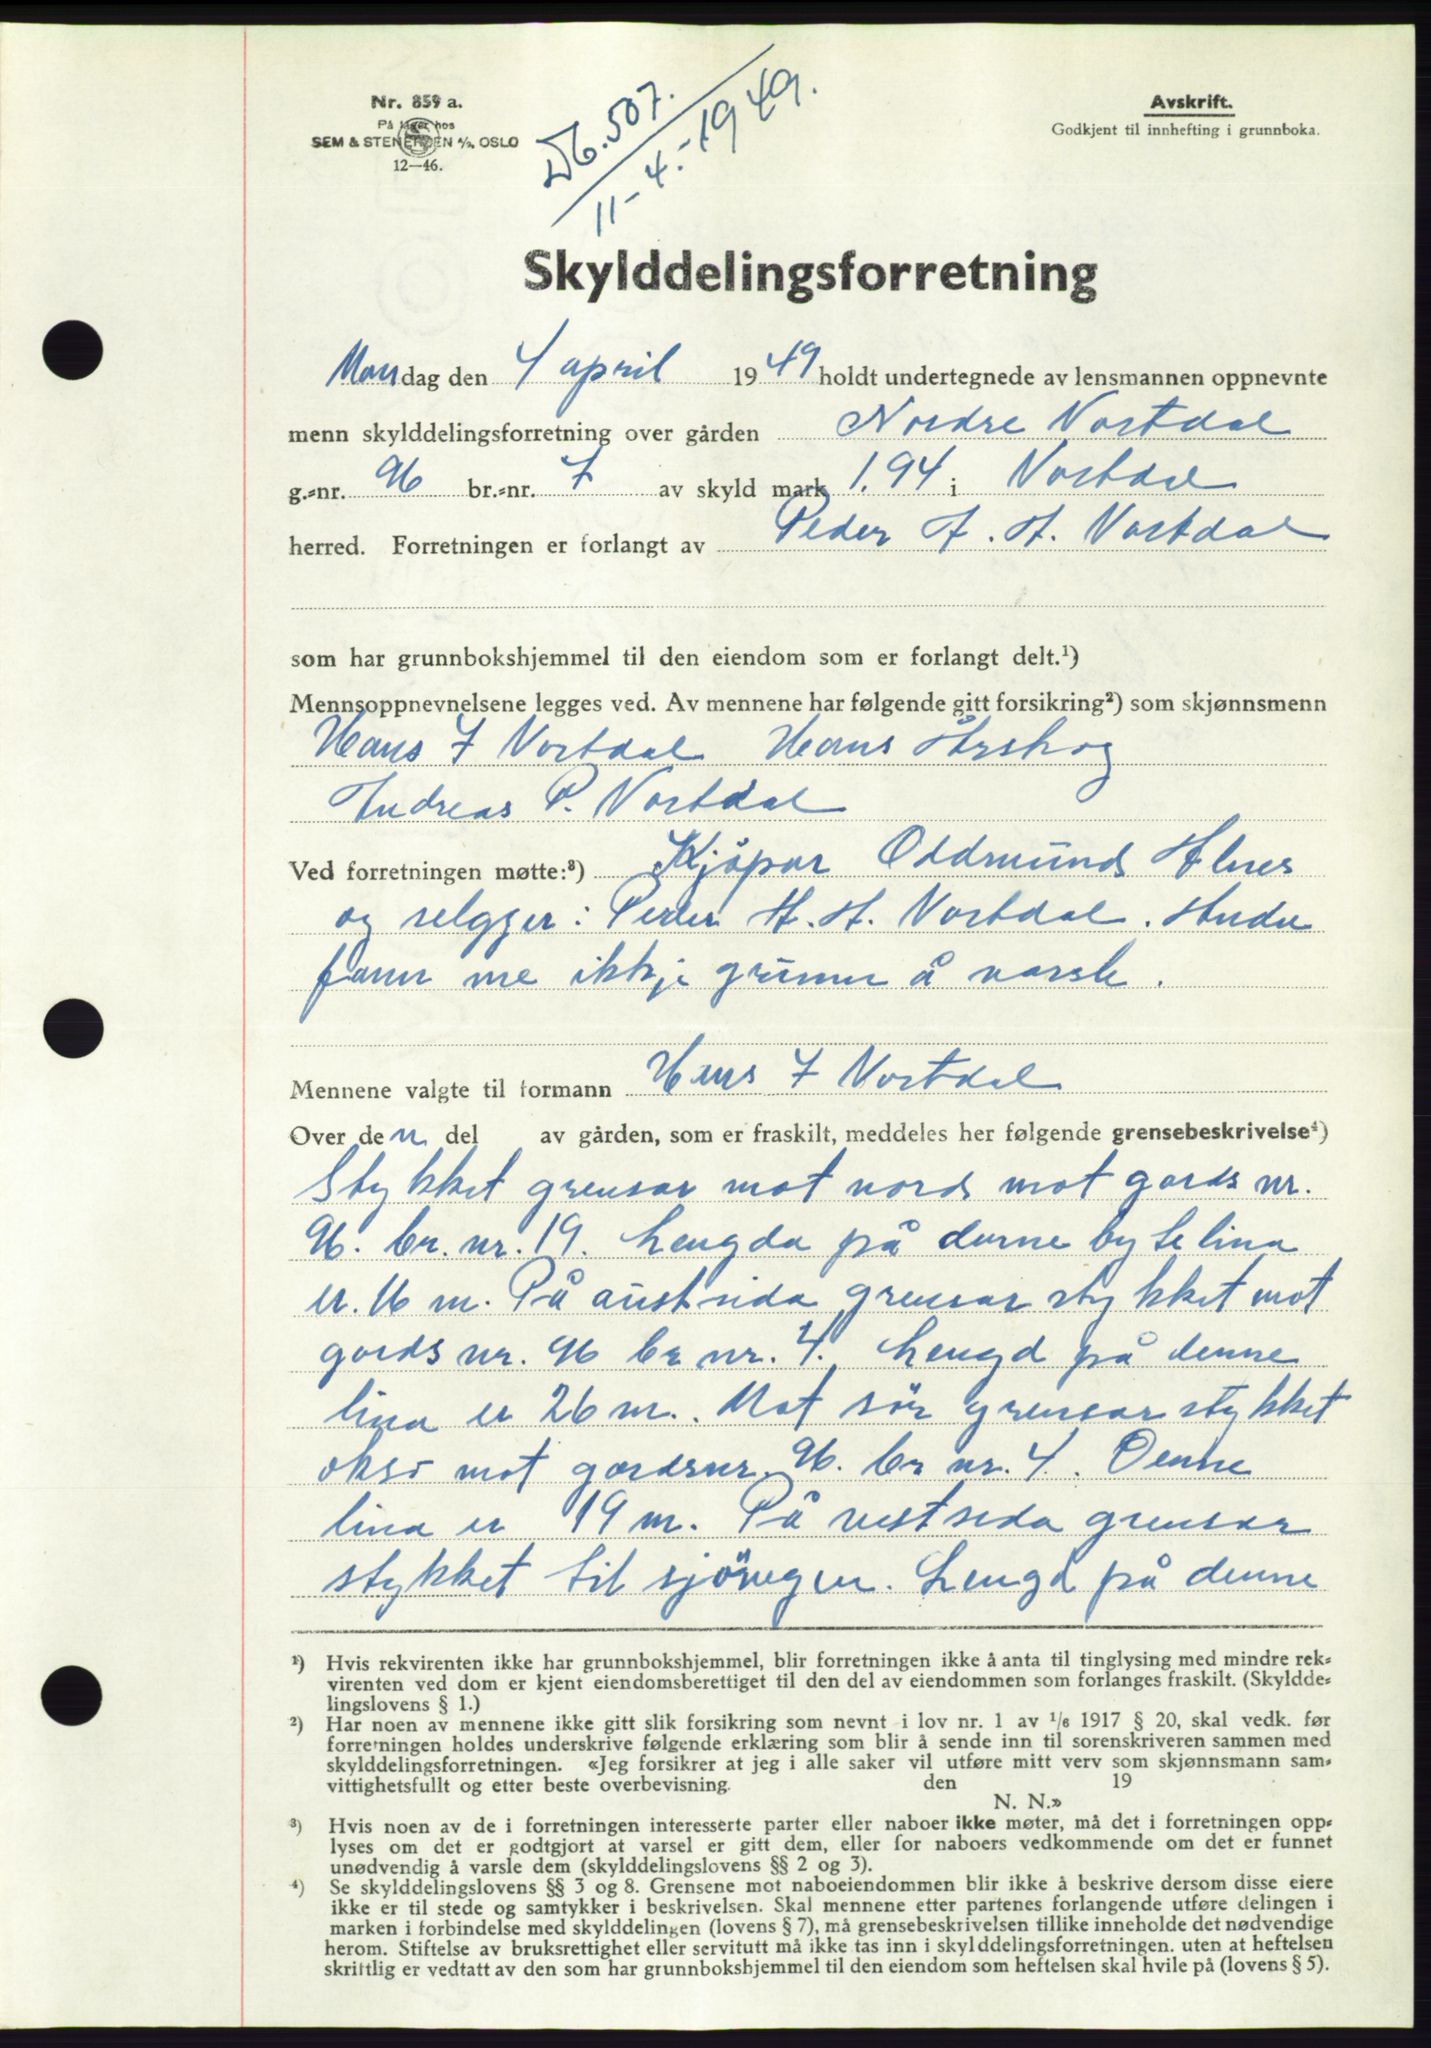 Nr. 859 a.
På lager hos
SEM & STENERSEN A/S. OSLO
12—46.
Db. 507.
11-4.-1949.
Avskrift.
Godkjent til innhefting i grunnboka.
Skylddelingsforretning
Mandag den 4 april 1949 holdt undertegnede av lensmannen oppnevnte
menn skylddelingsforretning over gården Nordre Nordal
g.=nr. 96 br.=nr. 7 av skyld mark 1.94 i Nordal
herred. Forretningen er forlangt av Peder A. A. Nordal
som har grunnbokshjemmel til den eiendom som er forlangt delt.¹)
Mennsoppnevnelsene legges ved. Av mennene har følgende gitt forsikring²) som skjønnsmenn
Hans J Nordal Hans Årskog
Andreas P. Nordal
Ved forretningen møtte:³) Kjöpar Oddmund Alnes
og selgjer: Peder A. A. Nordal. Andre
fann me ikkje grunn å varsle.
Mennene valgte til formann Hans J Nordal
Over den del av gården, som er fraskilt, meddeles her følgende grensebeskrivelse⁴)
Stykket grensar mot nord mot gards nr.
96. br. nr. 19. Lengda på denne bytelina
er 16 m. På austsida grensar stykket mot
gards nr. 96 br nr. 4. Lengd på denne
lina er 26 m. Mot sör grensar stykket
også mot gardsnr. 96. br nr. 4. Denne
lina er 19 m. På vestsida grensar
stykket til sjövegen. Lengd på denne
¹) Hvis rekvirenten ikke har grunnbokshjemmel, blir forretningen ikke å anta til tinglysing med mindre rek=
virenten ved dom er kjent eiendomsberettiget til den del av eiendommen som forlanges fraskilt. (Skyldde=
lingslovens § 1.)
²) Har noen av mennene ikke gitt slik forsikring som nevnt i lov nr. 1 av ¹/₆ 1917 § 20, skal vedk. før
forretningen holdes underskrive følgende erklæring som blir å sende inn til sorenskriveren sammen med
skylddelingsforretningen. «Jeg forsikrer at jeg i alle saker vil utføre mitt verv som skjønnsmann sam=
vittighetsfullt og etter beste overbevisning. den 19
N. N.»
³) Hvis noen av de i forretningen interesserte parter eller naboer ikke møter, må det i forretningen opp=
lyses om det er godtgjort at varsel er gitt dem, eller for naboers vedkommende om det er funnet
unødvendig å varsle dem (skylddelingslovens §§ 2 og 3).
⁴) Se skylddelingslovens §§ 3 og 8. Grensene mot naboeiendommen blir ikke å beskrive dersom disse eiere
ikke er til stede og samtykker i beskrivelsen. Skal mennene etter partenes forlangende utføre delingen i
marken i forbindelse med skylddelingen (lovens § 7), må grensebeskrivelsen tillike inneholde det nødvendige
herom. Stiftelse av bruksrettighet eller servitutt må ikke tas inn i skylddelingsforretningen. uten at heftelsen
skriftlig er vedtatt av den som har grunnbokshjemmel til den eiendom som heftelsen skal hvile på (lovens § 5).